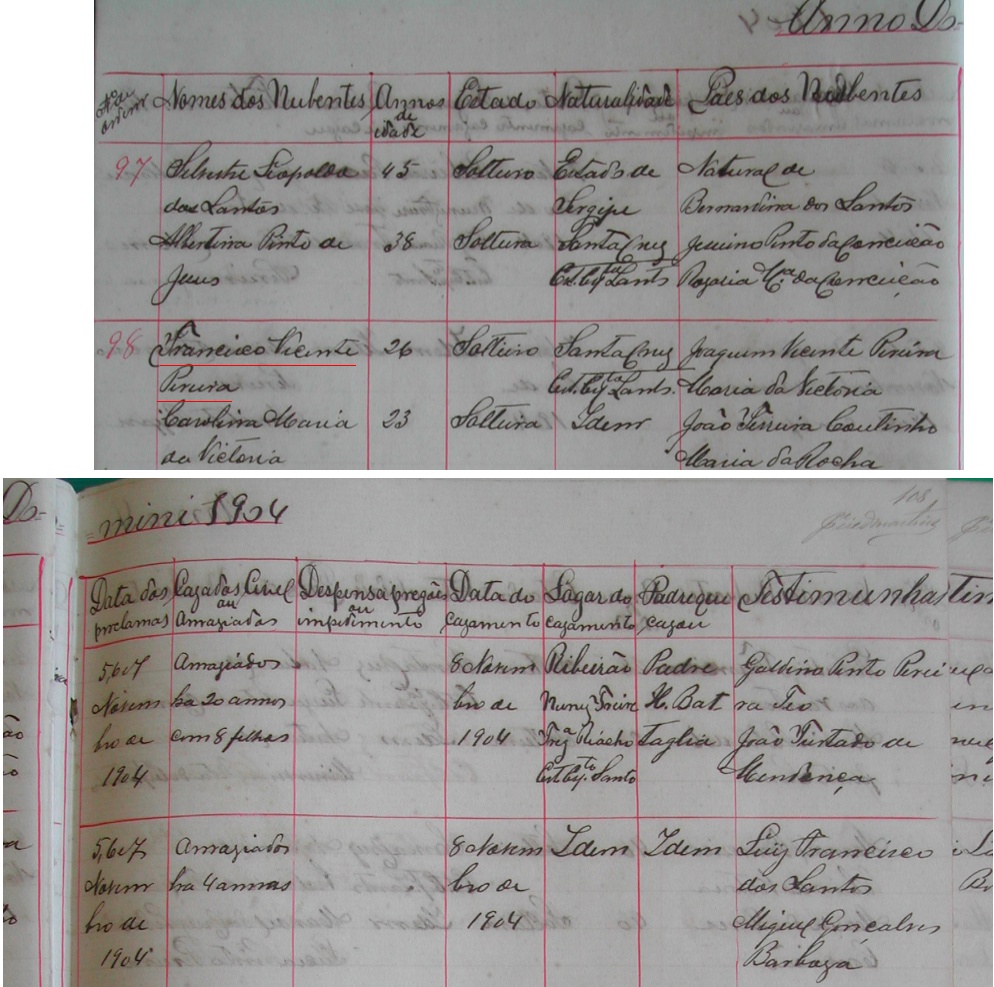 Anno Do-
Nº de ordem
Nomes dos Nubentes
Annos de idade
Estado
Naturalidade
Paes dos Nubentes
97
Silvestre Leopoldo
dos Santos
45
Solteiro
Estado de
Sergipe
Natural de
Bernardina dos Santos
Albertina Pinto de
Jesus
38
Solteira
Santa Cruz
Est. Esp.to Santo
Jesuino Pinto da Conceicão
Rosaria M.a da Conceição
98
Francisco Vicente
Pereira
26
Solteiro
Santa Cruz
Est. Esp.to Santo.
Joaquim Vicente Pereira
Maria da Victoria
Carolina Maria
da Victoria
23
Solteira
Idem
João Ferreira Coutinho
Maria da Rocha
Do-
=mini 1904
108
Data dos
proclamas
Cazados Civel
ou
Amaziados
Despensa pregões
ou
impedimento
Data do
cazamento
Lugar do
cazamento
Padre que
cazou
Testimunhas
5, 6 e 7
Novem
bro de
1904
Amaziados
ha 20 annos
com 8 filhos
8 Novem
bro de
1904
Ribeirão
Nunes Freire
Freg.a Riacho
Est. Esp.to Santo
Padre
H. Bat
taglia
Galdino Pinto Perei
ra Teo
João Furtado de
Mendonça
5, 6 e 7
Novem
bro de
1904
Amaziados
ha 4 annos
8 Novem
bro de
1904
Idem
Idem
Luiz Francisco
dos Santos
Miguel Goncalves
Barboza